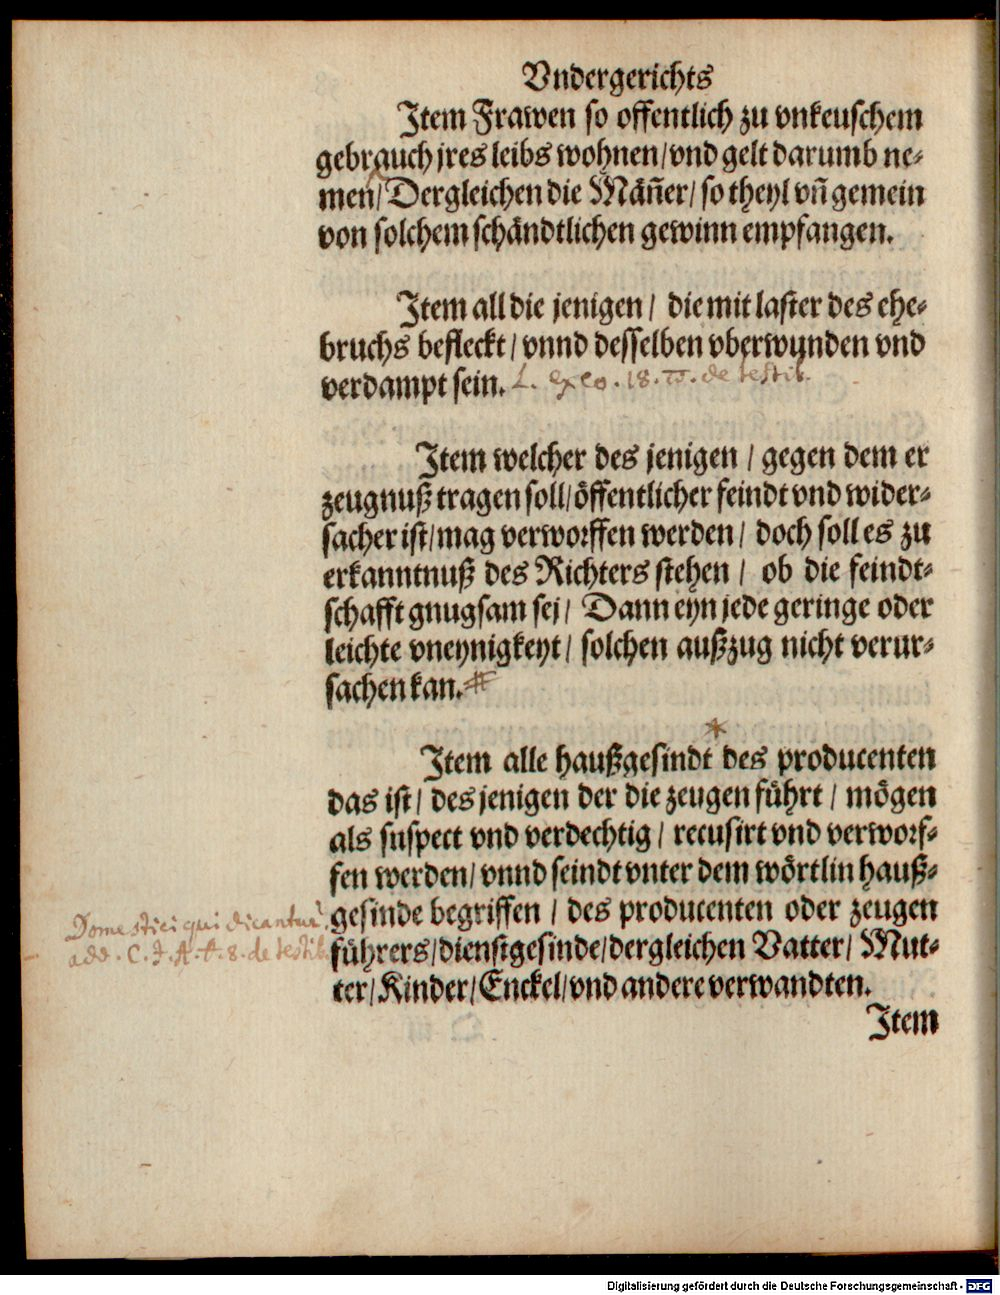 Vndergerichts
Item Frawen so offentlich zu vnkeuschem
gebrauch jres leibs wohnen/vnd gelt darumb ne-
men/Dergleichen die Mäñer/ so theyl vñ gemein
von solchem schändtlichen gewinn empfangen.
Item all die jenigen/ die mit laster des ehe-
bruchs befleckt/ vnnd desselben vberwunden vnd
verdampt sein. L. ex eo. 18. π. de testib.
Item welcher des jenigen / gegen dem er
zeugnuß tragen soll/öffentlicher feindt vnd wider-
sacher ist/mag verworffen werden/ doch soll es zu
erkanntnuß des Richters stehen/ ob die feindt-
schafft gnugsam sej/ Dann eyn jede geringe oder
leichte vneynigkeyt/ solchen außzug nicht verur-
sachen kan.#
Item alle haußgesindt * des producenten
das ist/ des jenigen der die zeugen führt/ mögen
als suspect vnd verdechtig/ recusirt vnd verworf-
fen werden/ vnnd seindt vnter dem wörtlin hauß-
gesinde begriffen / des producenten oder zeugen
führers/dienstgesinde/dergleichen Vatter/ Mut-
ter/Kinder/Enckel/vnd andere verwandten.
Item
Domestici qui dicantur
add. C. de testib.
Digitalisierung gefördert durch die Deutsche Forschungsgemeinschaft - DFG